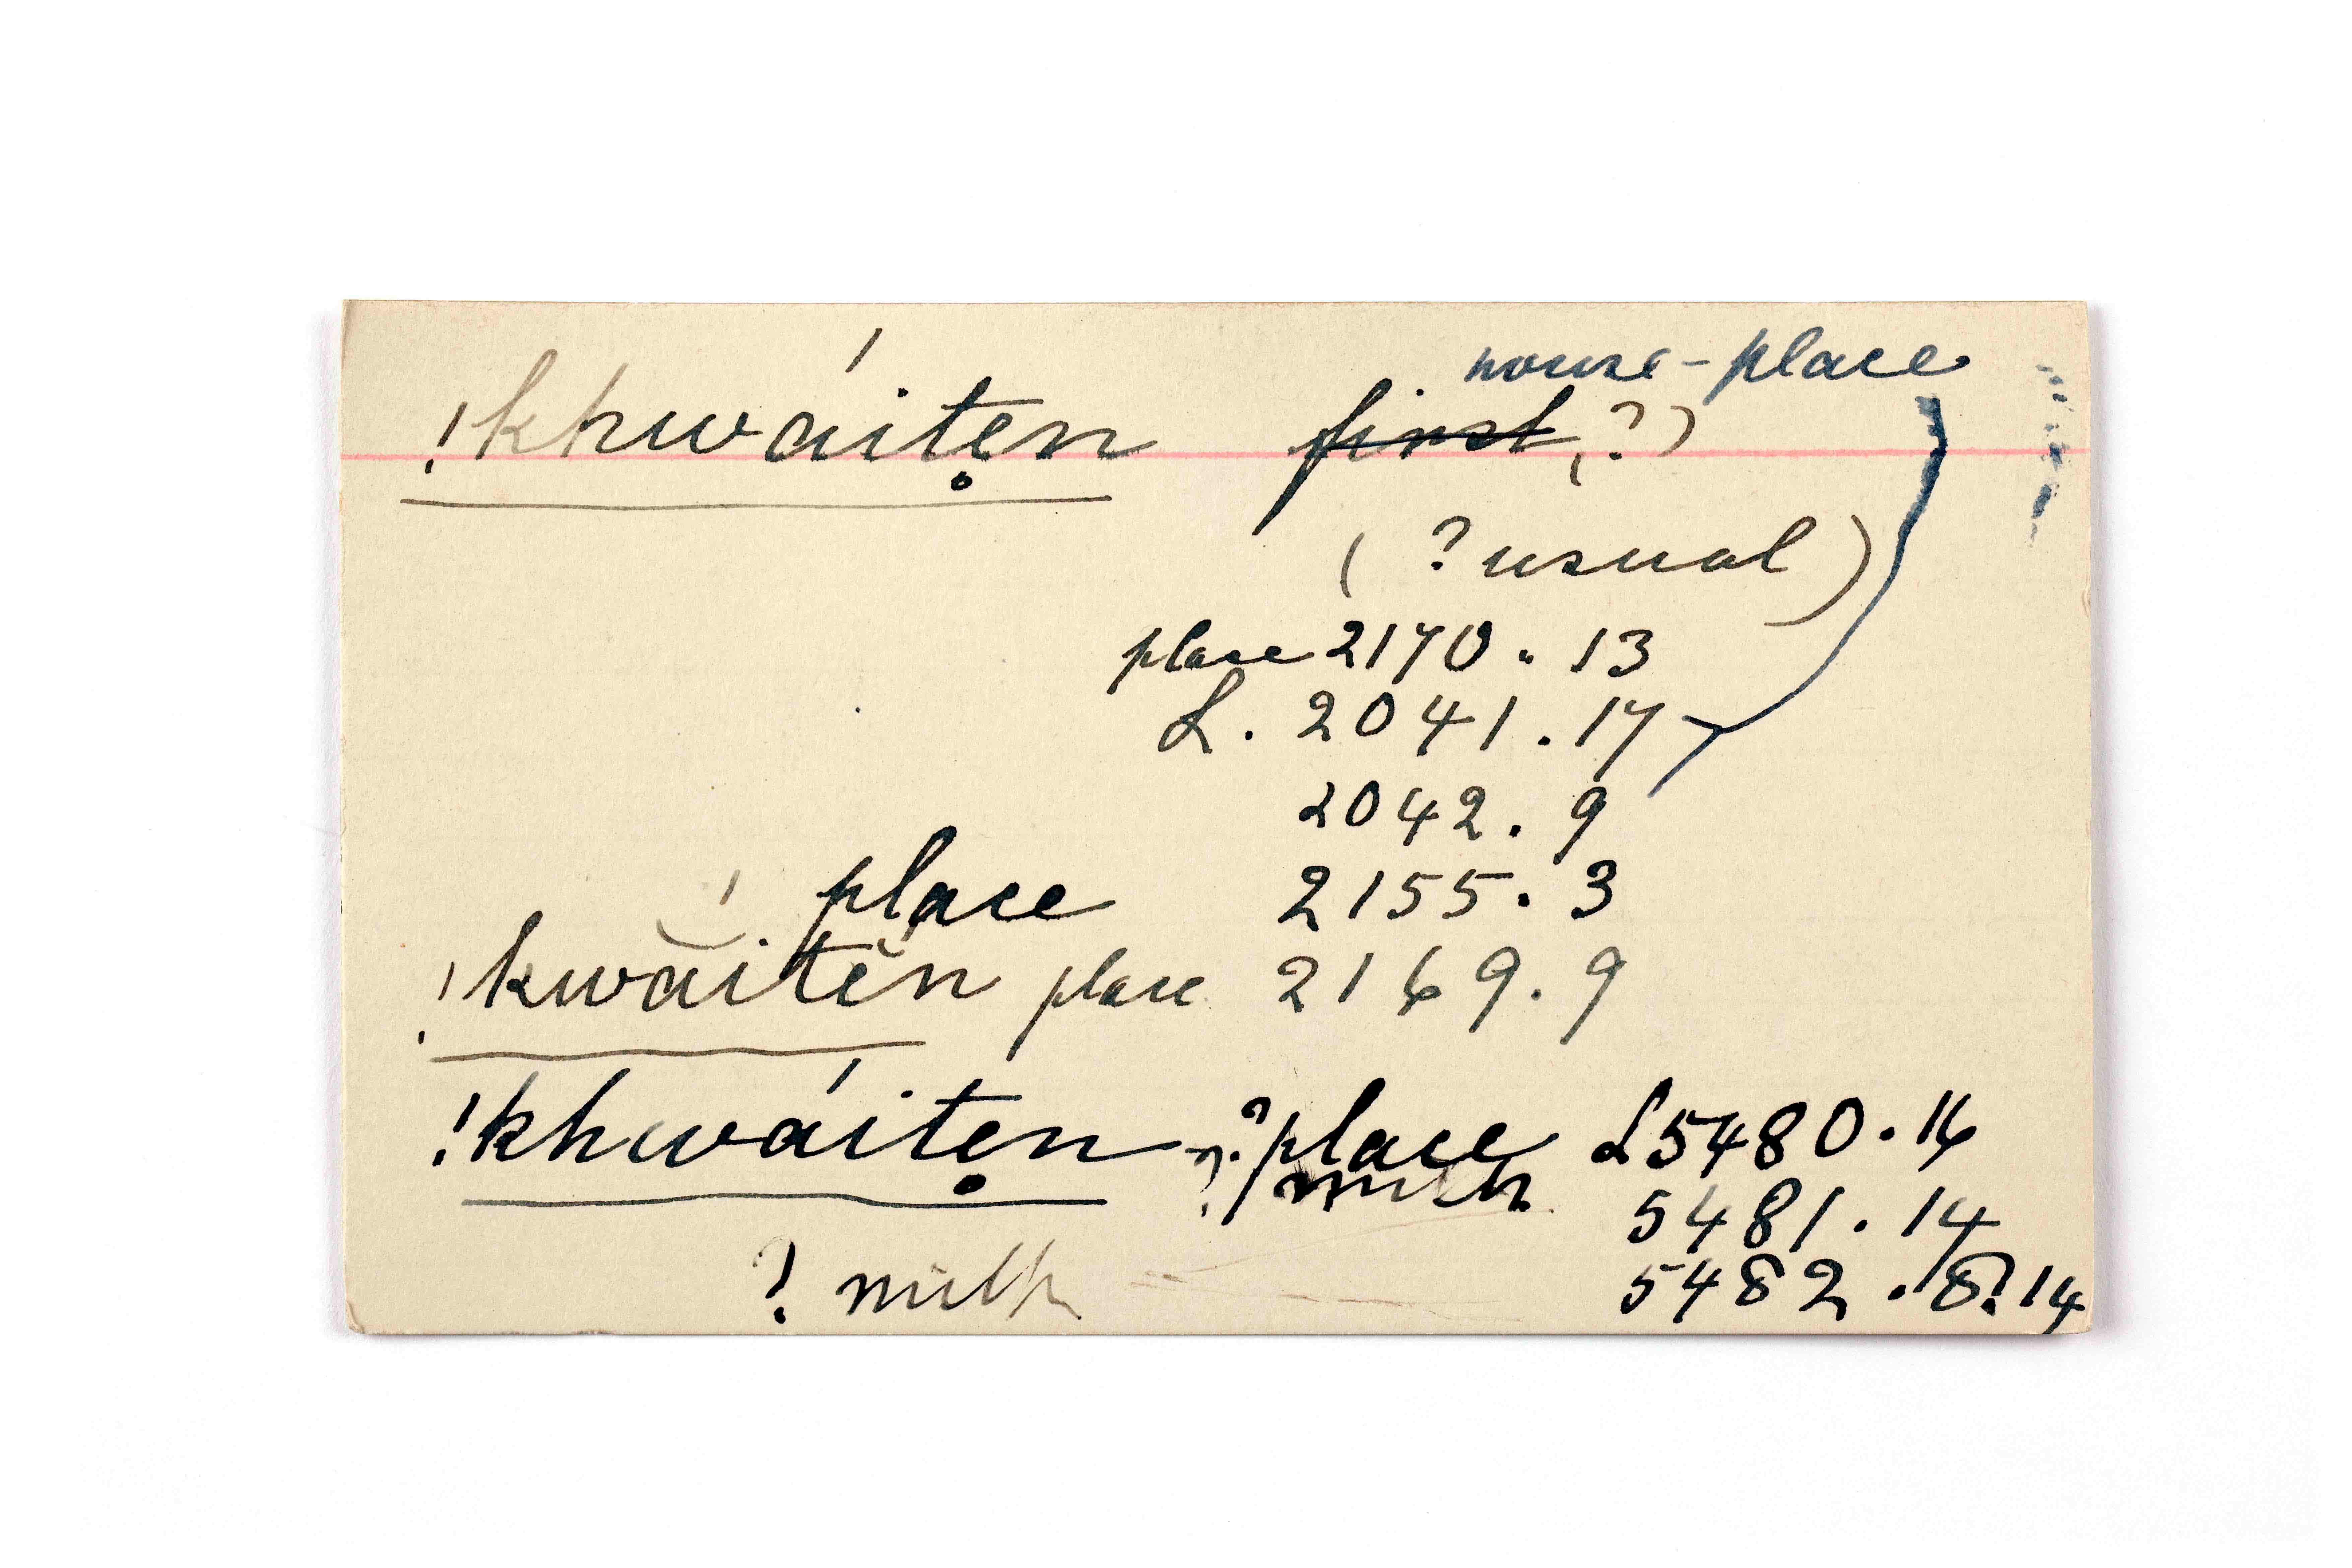 house-place
!khwáitẹn first (?)
(?usual)
place 2170.13
L. 2041.17
2042.9
place 2155.3
!kwā̆itĕn place 2169.9
!khwáitẹn - ?place L5480.16
?/milk 5481.14
? milk 5482.8?14